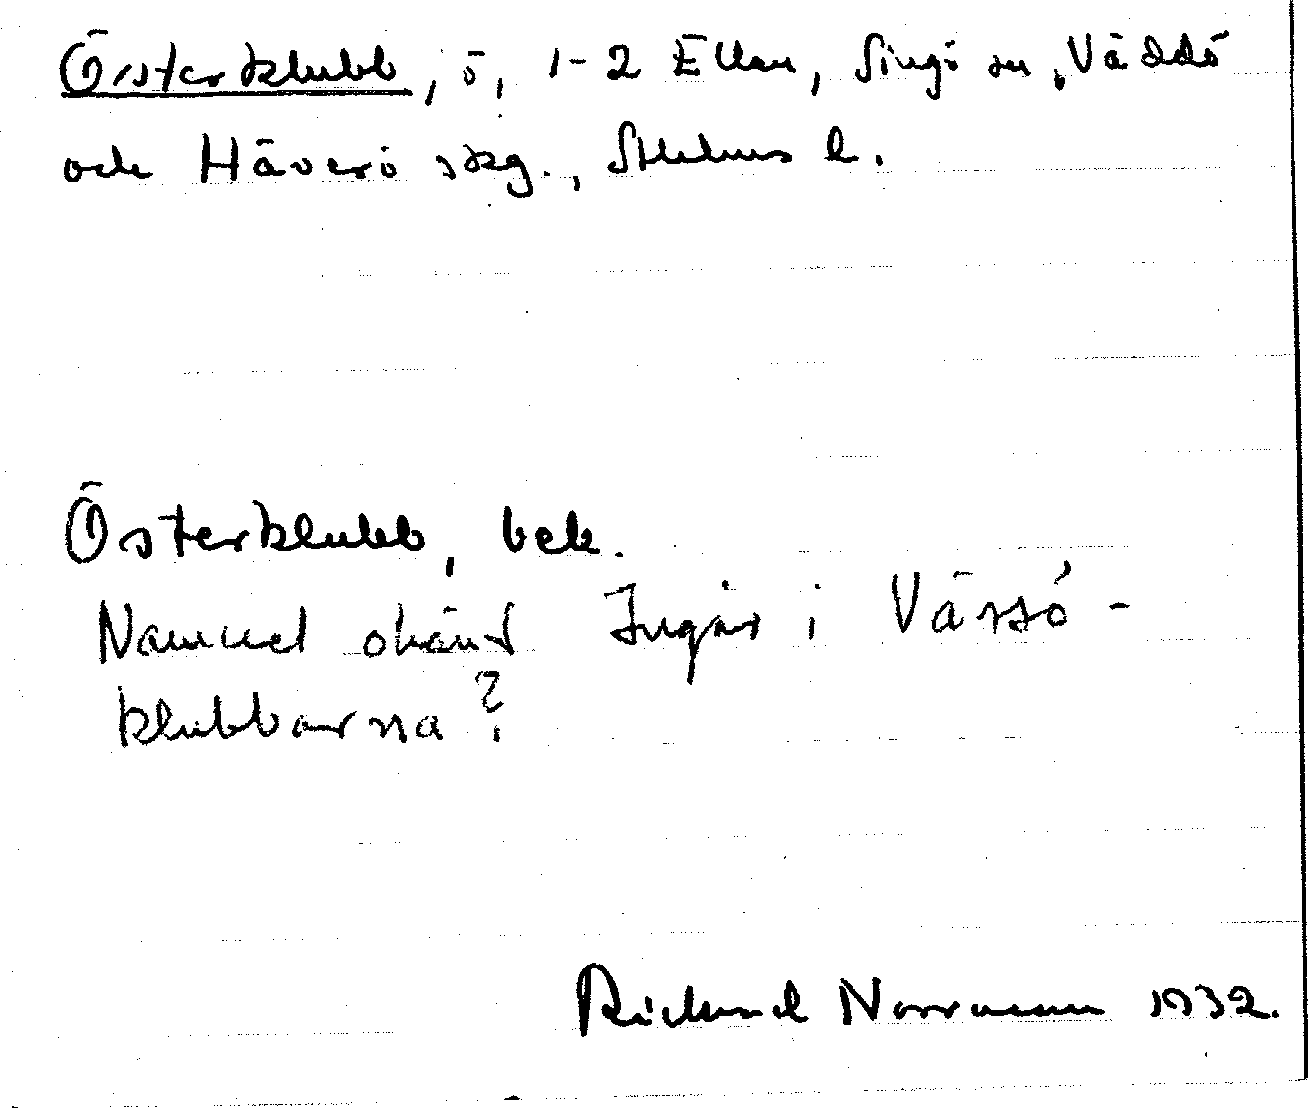 Österklubb, ö, 1-2 Ellan, Singö sn, Väddö
och Häverö skg., Sthlms l.
Österklubb, bek.
Namnet okänt Ingår i Vässö-
klubbarna?
Rickard Norrman 1932.